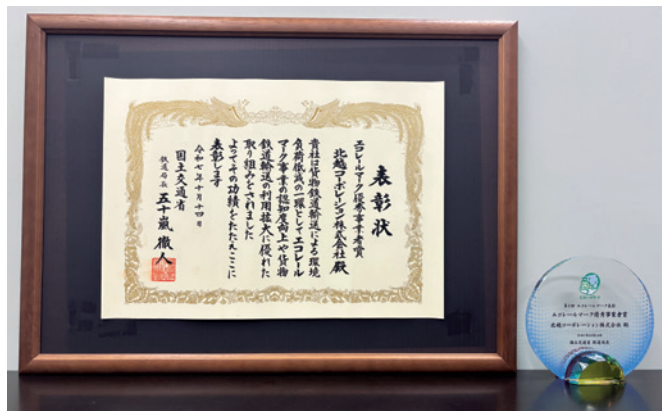 表彰状
エコレールマーク優秀事業者賞
北越コーポレーション株式会社 殿
貴社は貨物鉄道輸送による環境
負荷低減の一環としてエコレール
マーク事業の認知度向上や貨物
鉄道輸送の利用拡大に優れた
取り組みをされました
よってその功績をたたえここに
表彰します
令和七年十月十四日
国土交通省
鉄道局長 五十嵐 徹人
エコレールマーク優秀事業者賞
北越コーポレーション株式会社 殿
国土交通省 鉄道局長